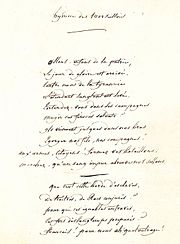 hymne des marseillais
Allons enfans de la patrie,
le jour de gloire est arrivé.
contre nous de la tyrannie
l'étendart sanglant est levé.
Entendez-vous dans les campagnes
mugir ces féroces soldats?
ils viennent jusques dans vos bras
égorger vos fils, vos compagnes
aux armes, citoyens! formez vos bataillons:
qu'un sang impur abreuve nos sillons.
que veut cette horde d'esclaves,
de traîtres, de rois conjurés?
pour qui ces ignobles entraves,
ces fers dès longtemps préparés?
français! pour nous ah! quel outrage!